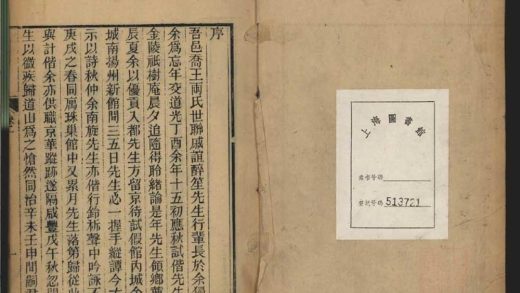 上海圖書館
索書號碼
登記號碼 513721
序
吾邑喬王兩氏世聯戚誼醉笙先生行輩長於余獨
余為忘年交道光丁酉余年十五初應秋試偕先生
金陵祇樹庵晨夕追隨得聆緒論是年先生領鄉薦
辰夏余以優貢入都先生方留京待試假館內城余
城南揚州新館間三五日先生必一握手縱譚今古
示以詩秋仲余南旋先生亦偕行鈴柝聲中吟詠不
庚戌之春同寓珠巢館中又累月先生落第歸從此
與計偕余亦供職京華蹤跡遂隔咸豐戊午秋忽聞
生以微疾歸道山為之愴然同治辛未壬申間嗣君